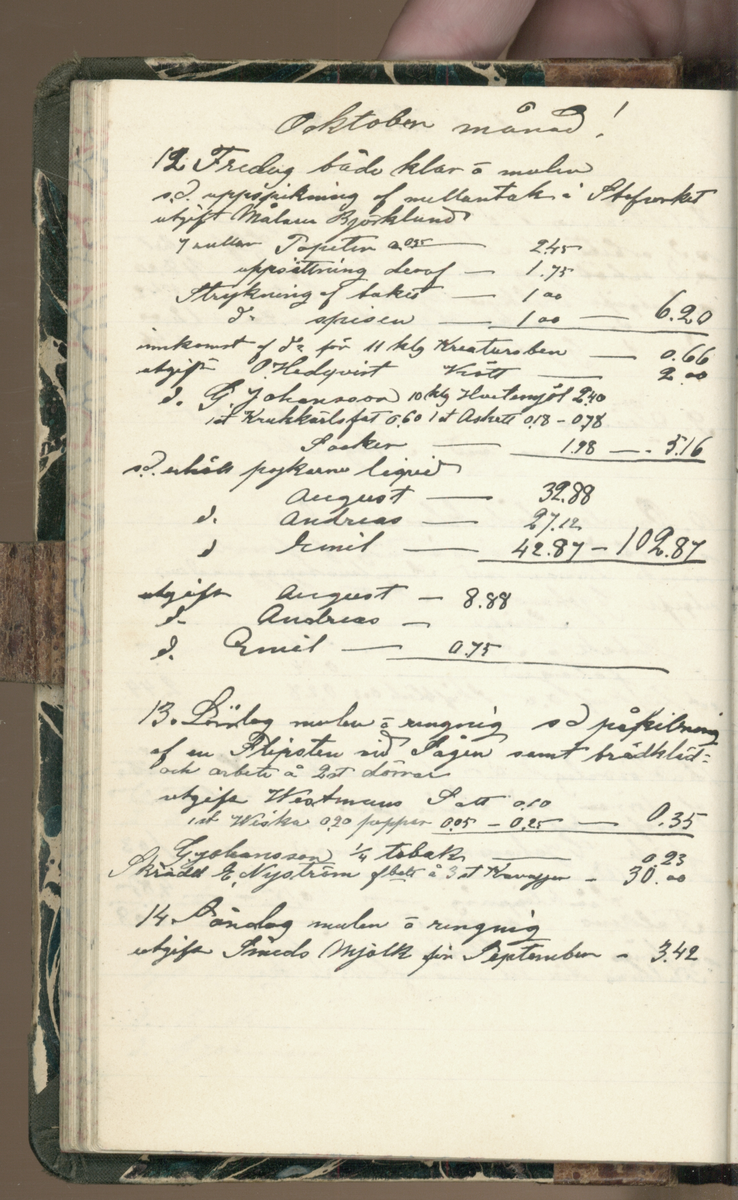 Ocktober månad!
12 Fredag både klar o mulen
s.d. uppspikning af mellantak i Stefverket
utgift Målaren Björklund
7 rullar Tapeter a 0.35 — 2.45
uppsättning deraf — 1.75
Strykning af taket — 1 00
do spisen — 1 00 — 6.20
inkomst af do för 11 klg Kreatursben — 0.66
utgift O. Hedqvist Kött — 2 00
d. G Johansson 10 klg Hvetemjöl 2.40
1 st Krukkärlsfat 0.60 1 st Askett 0.18 – 0.78
Socker — 1.98 — 5.16
s.d. erhöll pojkarne liqvid
August — 32.88
d. Andreas — 27.12
d Emil — 42.87 – 102.87
utgift August — 8.88
d. Andreas —
d. Emil — 0.75
13. Lördag mulen o rengnig s d påkilning
af en Slipsten vid Sågen samt brädkläd=
och arbete å 2 st dörrar
utgift Westmans Salt 0.10
1 st Wiska 0.20 peppar 0.05 – 0.25 — 0.35
G Johansson 1/4 tobak — 0.23
Skrädd E, Nyström å 3 st Kavajer – 30.00
14 Söndag mulen o rengnig
utgift Smeds Mjölk för September – 3.42